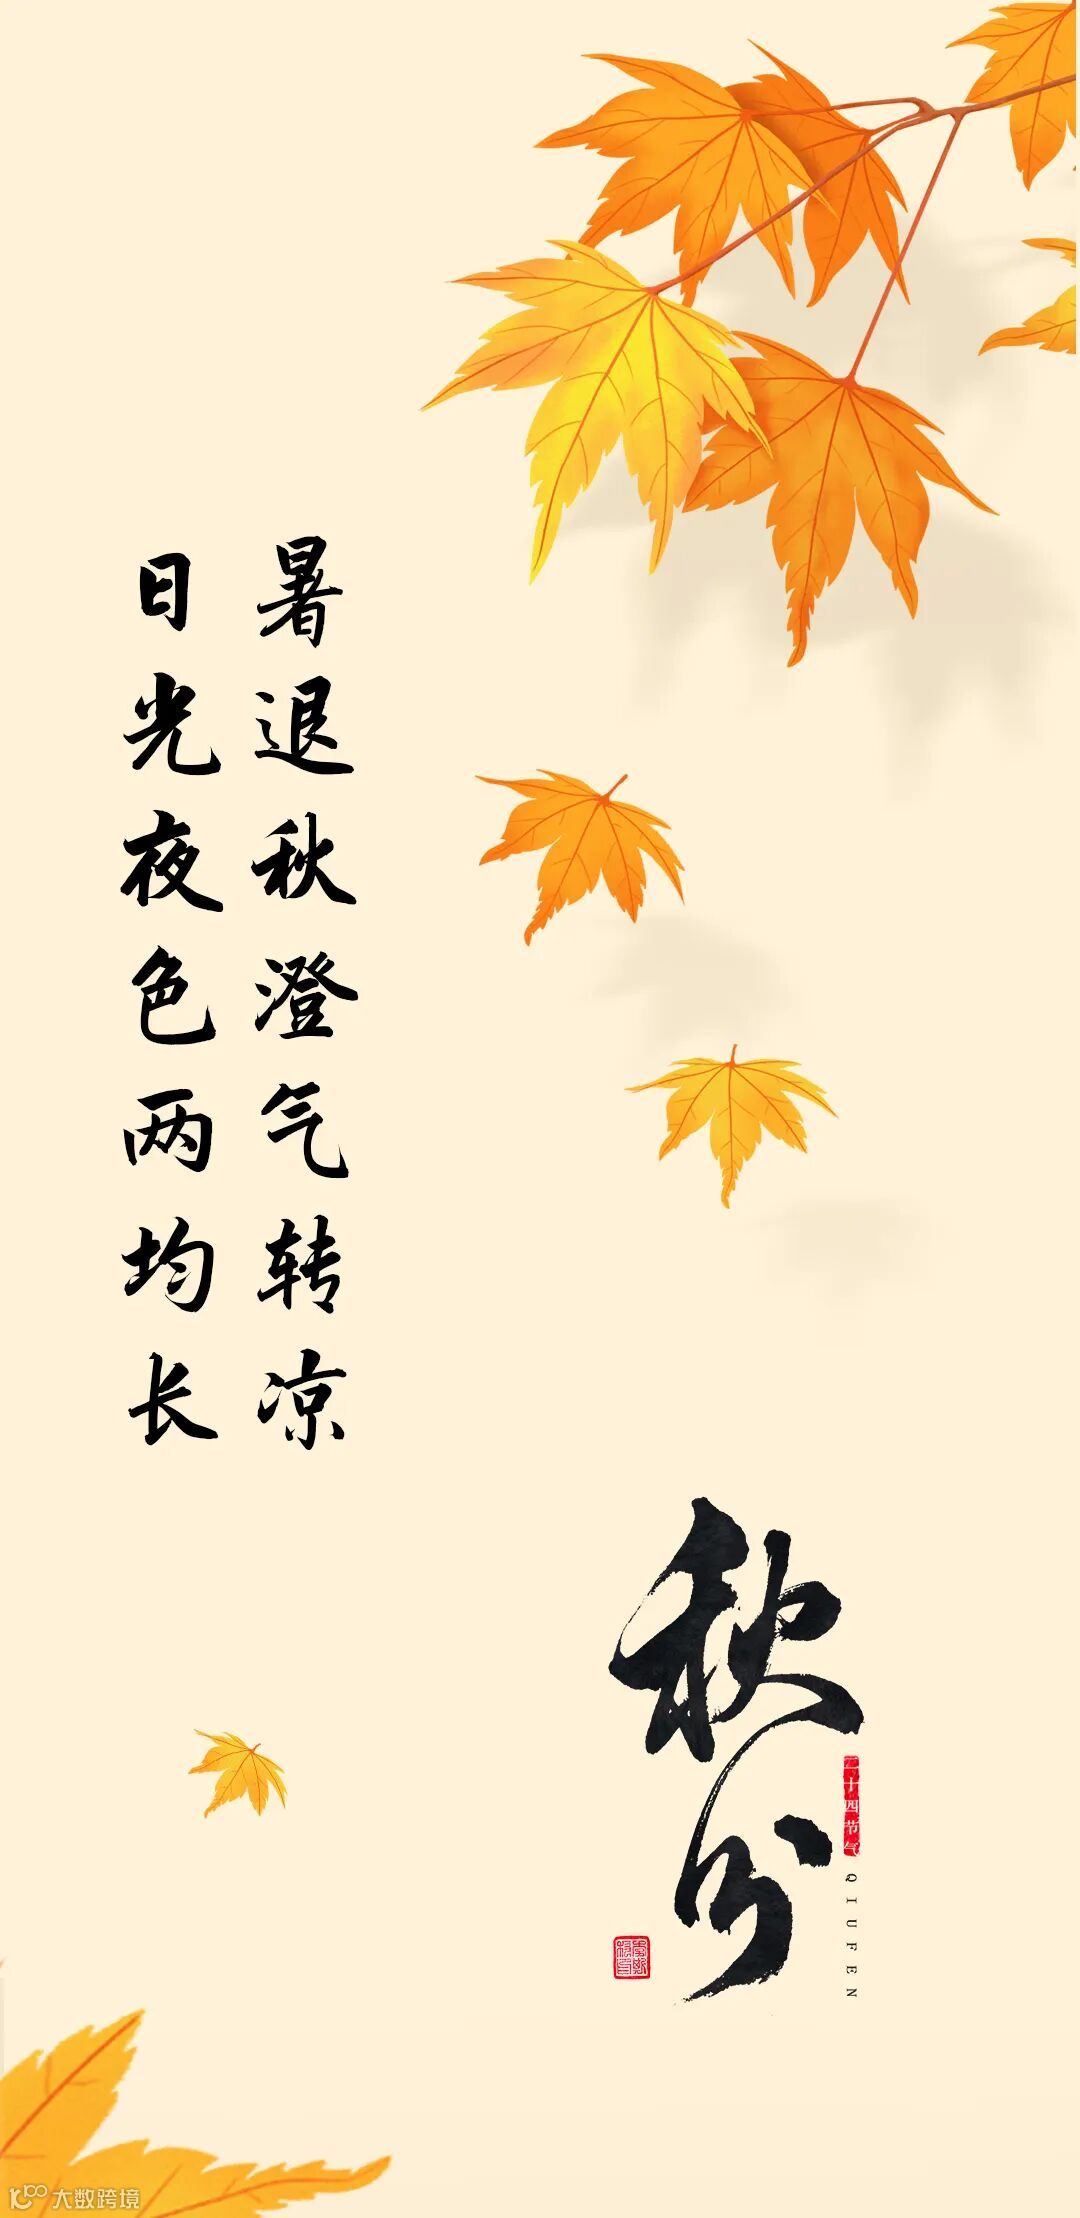 暑退秋澄气转凉
日光夜色两均长
秋分
二十四节气
QIUFEN
大数跨境